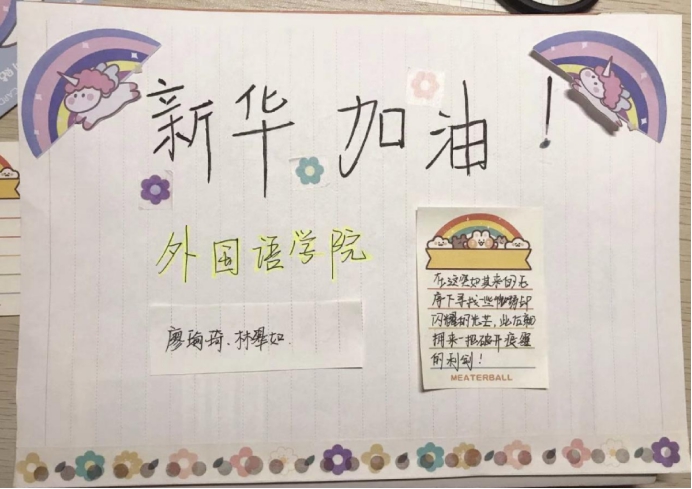 新华加油！
外国语学院
廖瑜琦、林翠如
在这突如其来的石
闪耀的光芒，此后朝
用来一把破开疫霾
的利剑！
MEATERBALL